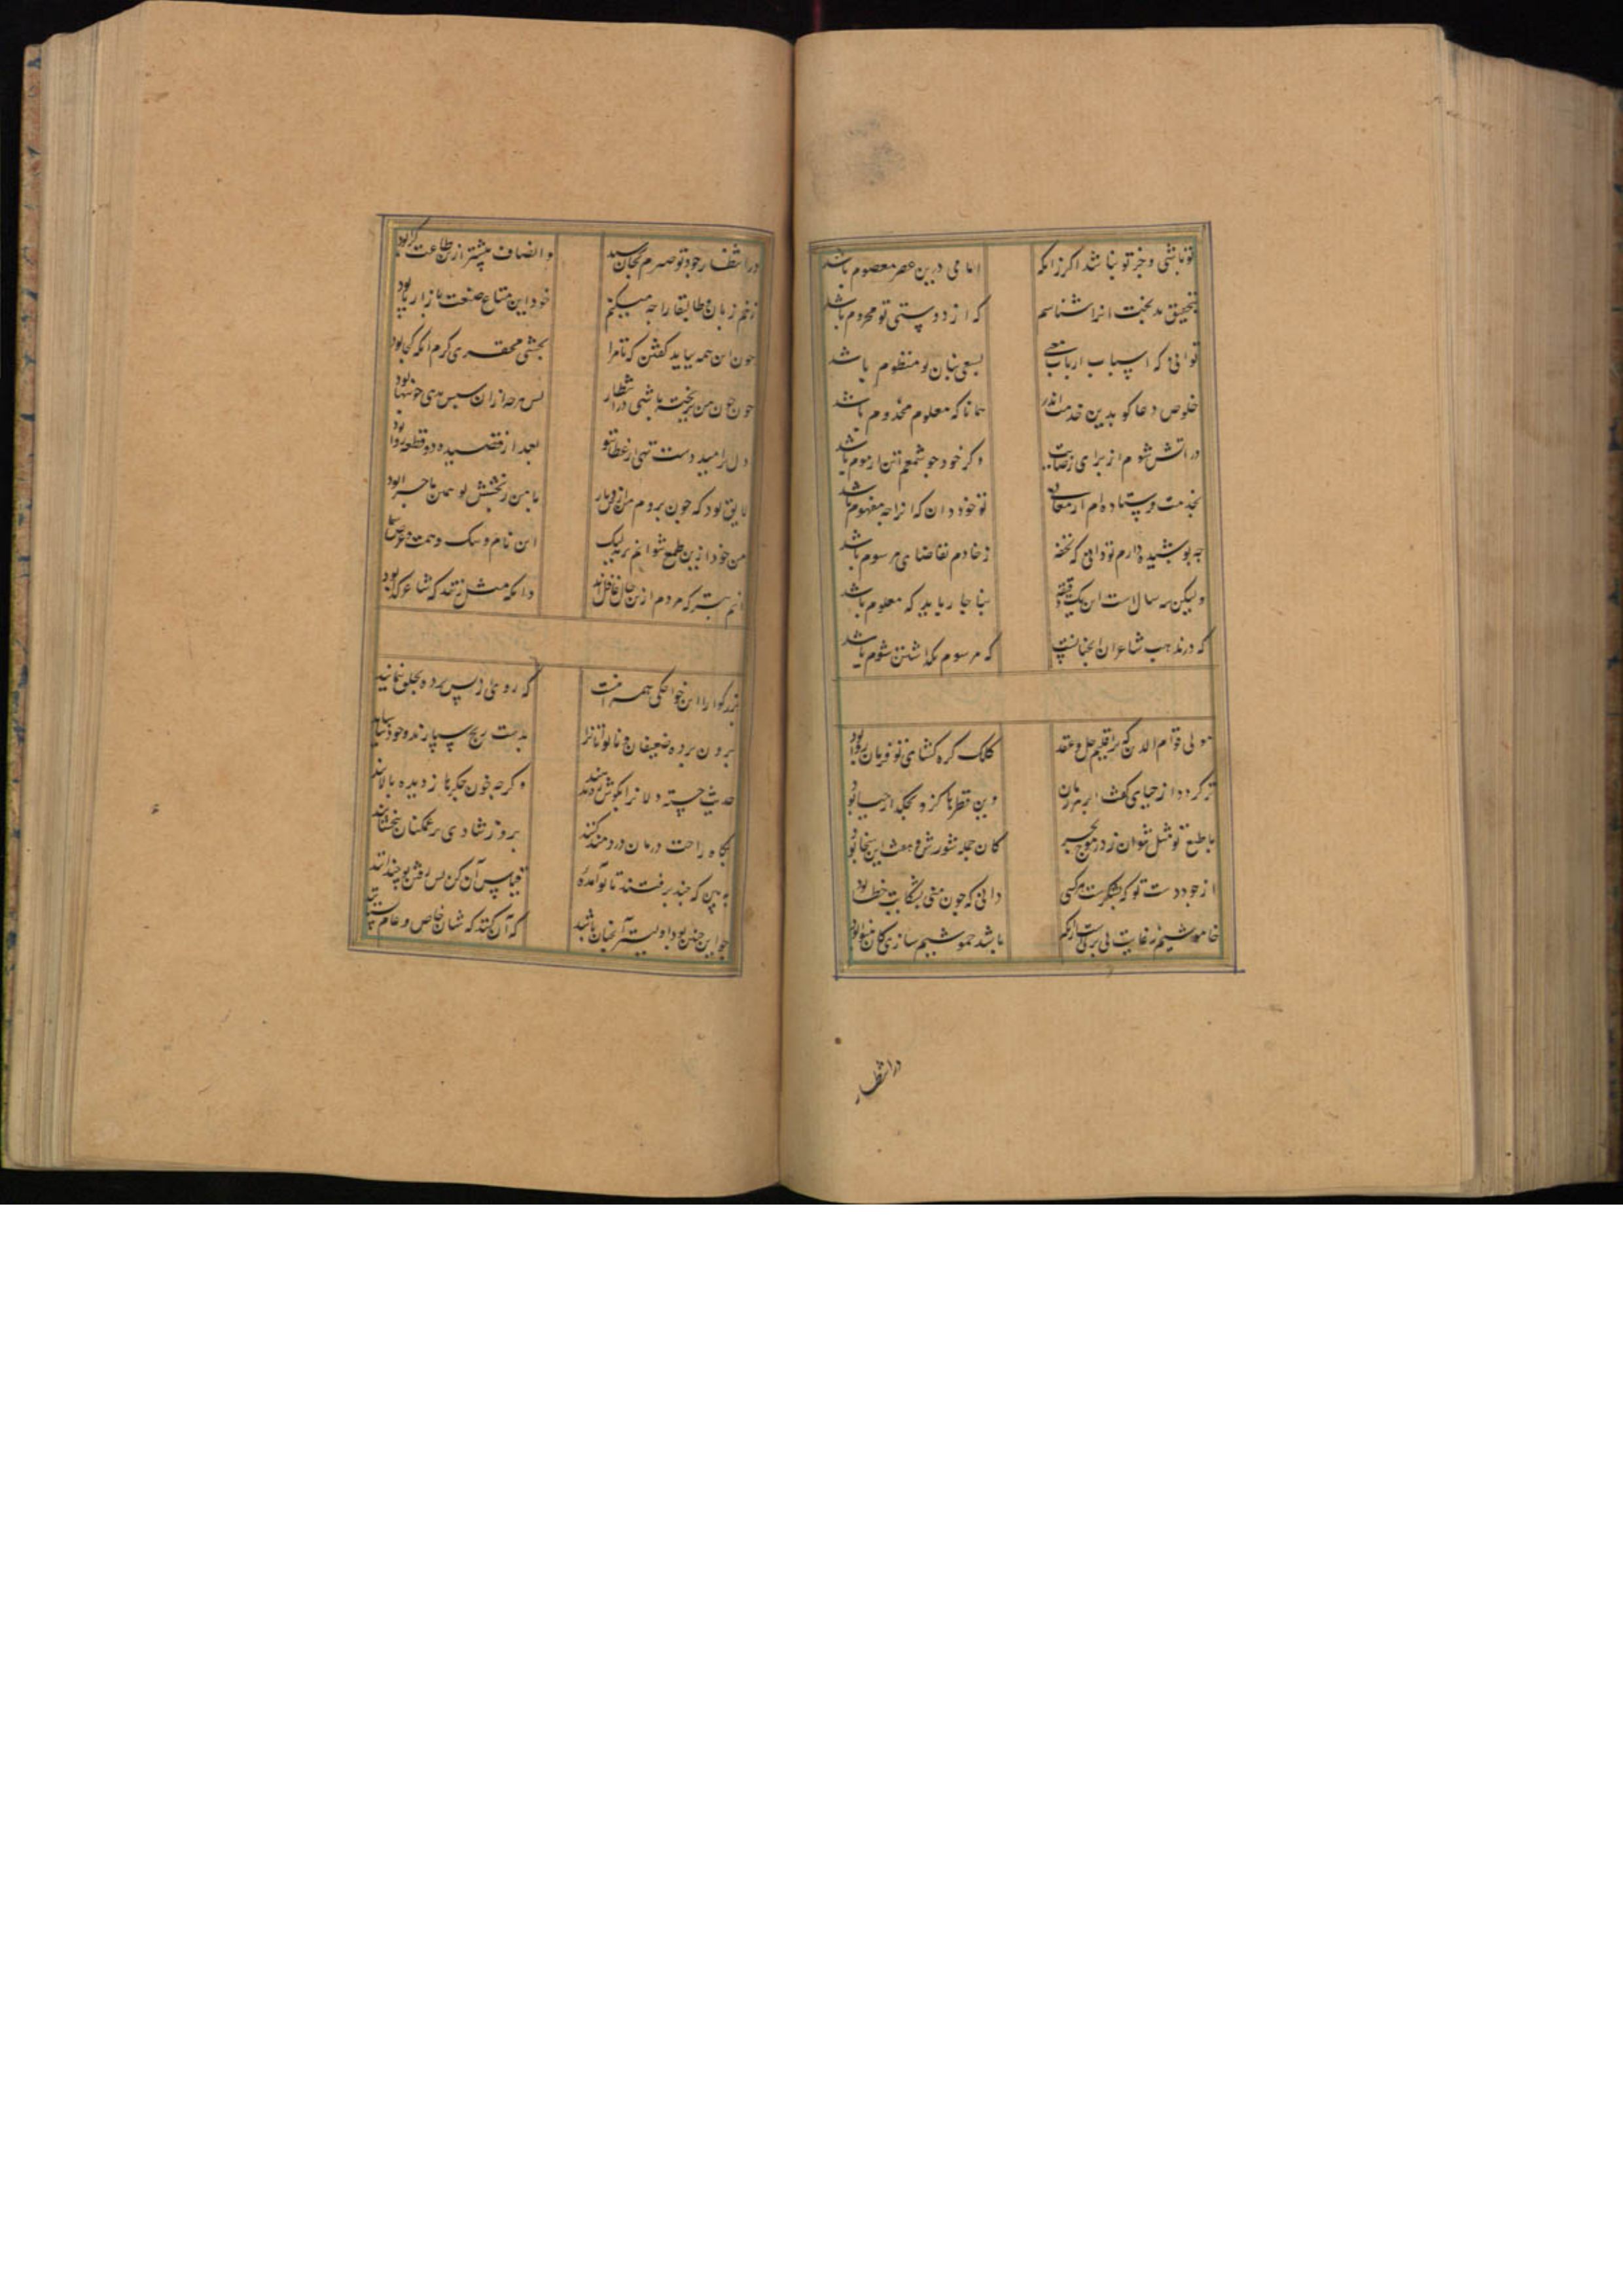 تو باشی و جز تو نباشد اکر زانکه امامی درین عصر معصوم باشد
بتحقیق بدبخت انرا شناسم که از دوستی تو محروم باشد
توانی که اسباب ارباب بسعی بنان تو منظوم باشد
خلوص دعا کو بدین خدمت اندر همانا که معلوم مخدوم باشد
در اتش شوم از برای وکر خود جو شمعم تن از موم باشد
بخدمت فرستاده ام تو خود دان که انرا جه مفهوم باشد
جه بوشیده دارم تو دانی که تحفه ز خادم تقاضای مرسوم باشد
ولیکن رسالاست این یک دقیقه بناجار باید که معلوم باشد
که در مذهب شاعران اینچنانست که مرسوم بکذاشتن شوم باشد
مولی قوام الدین که بر اقلیم حل و عقد کلک کره کشای تو فرمان روا بود
تر کردد از حیای کفت ابر هر زمان وین قطرها کزو بچکد از حیا بود
با طبع تو مثل نتوان زد ز موج بحر کان جمله شورش و همه این سخا بود
از جود دست تو که بشکرست هر کسی دانی که جون منی بشکایت خطا بود
خاموشیم ز غایت بی برکی است از نکم باشد خموشیم سازی کان بینوا بود
در انتظار
در انتظار جود تو صبرم بجان رسید و انصاف بیشتر از طاعت کرا بود
زخم زبان و طال بقا را جه میکنم خود این متاع صنعت بازار ما بود
جون این همه بباید کفتن که تا مرا بخشی محقری کرم انکه کجا بود
جون خون من بریخته باشی در انتظار بس هرجه از ان سبس دهی خونبها بود
دل بر امید و دست تهی از عطای تو بعد از قصیده و دو قطعه روا بود
لایق بود که جون بروم من ازین دیار با من ز بخشش تو همین ماجرا بود
من خود ازین طمع شوانم برید لیک این نام و ننک و همت و عرض شما بود
انم بتر که مردم ازین حال غافلند دانکه مثل زنند که شاعر کدا بود
بزرکوارا این خواجکی همه انست که روی از پس برده بخلق ننمایند
برون برده ضعیفان و ناتوانانرا بدست رنج سپارند و خود نیاسایند
حدیث خسته دلانرا بکوش ننهند وکرچه خون جکرها ز دیده بالایند
بکاه راحت درمان دردمند کنند بروز شادی بر غمکنان ببخشایند
ببین که جند برفتند تا تو آمدهٔ قیاس آن کن پس رفتن تو جند آیند
جو این جنین بود اولیتر آنجنان باشد که آن کنند که شان خاص و عام بستایند